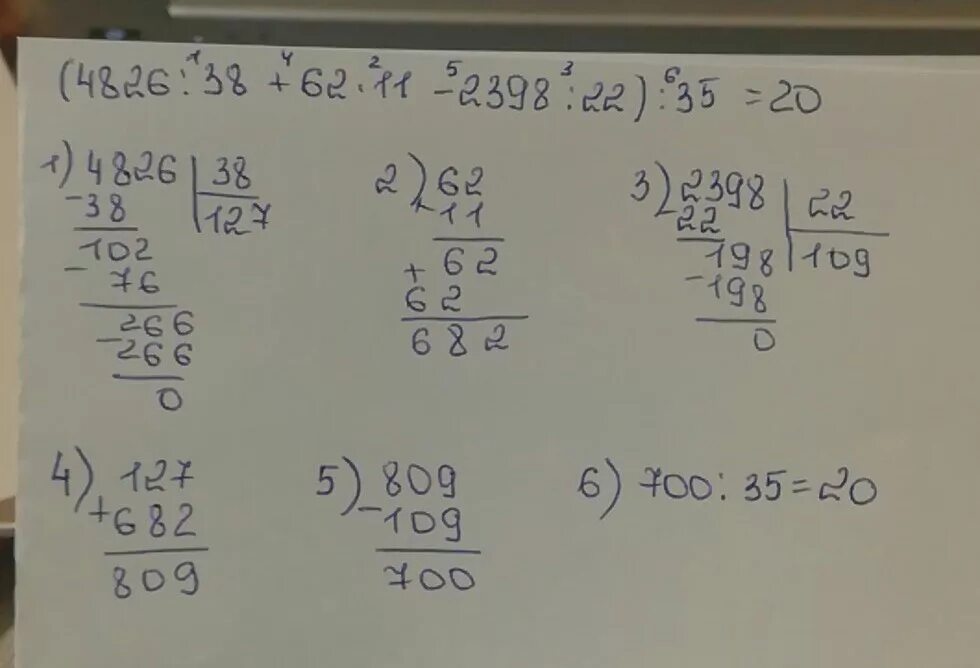 (4826 : 38 + 62 · 11 - 2398 : 22) : 35 = 20
1 4 2 5 3 6
1) 4826 | 38
- 38 | 127
102
- 76
- 266
266
0
2) 62
11
62
+
62
682
3) - 2398 | 22
22 | 109
198
- 198
0
4) 127
+ 682
809
5) 809
- 109
700
6) 700 : 35 = 20